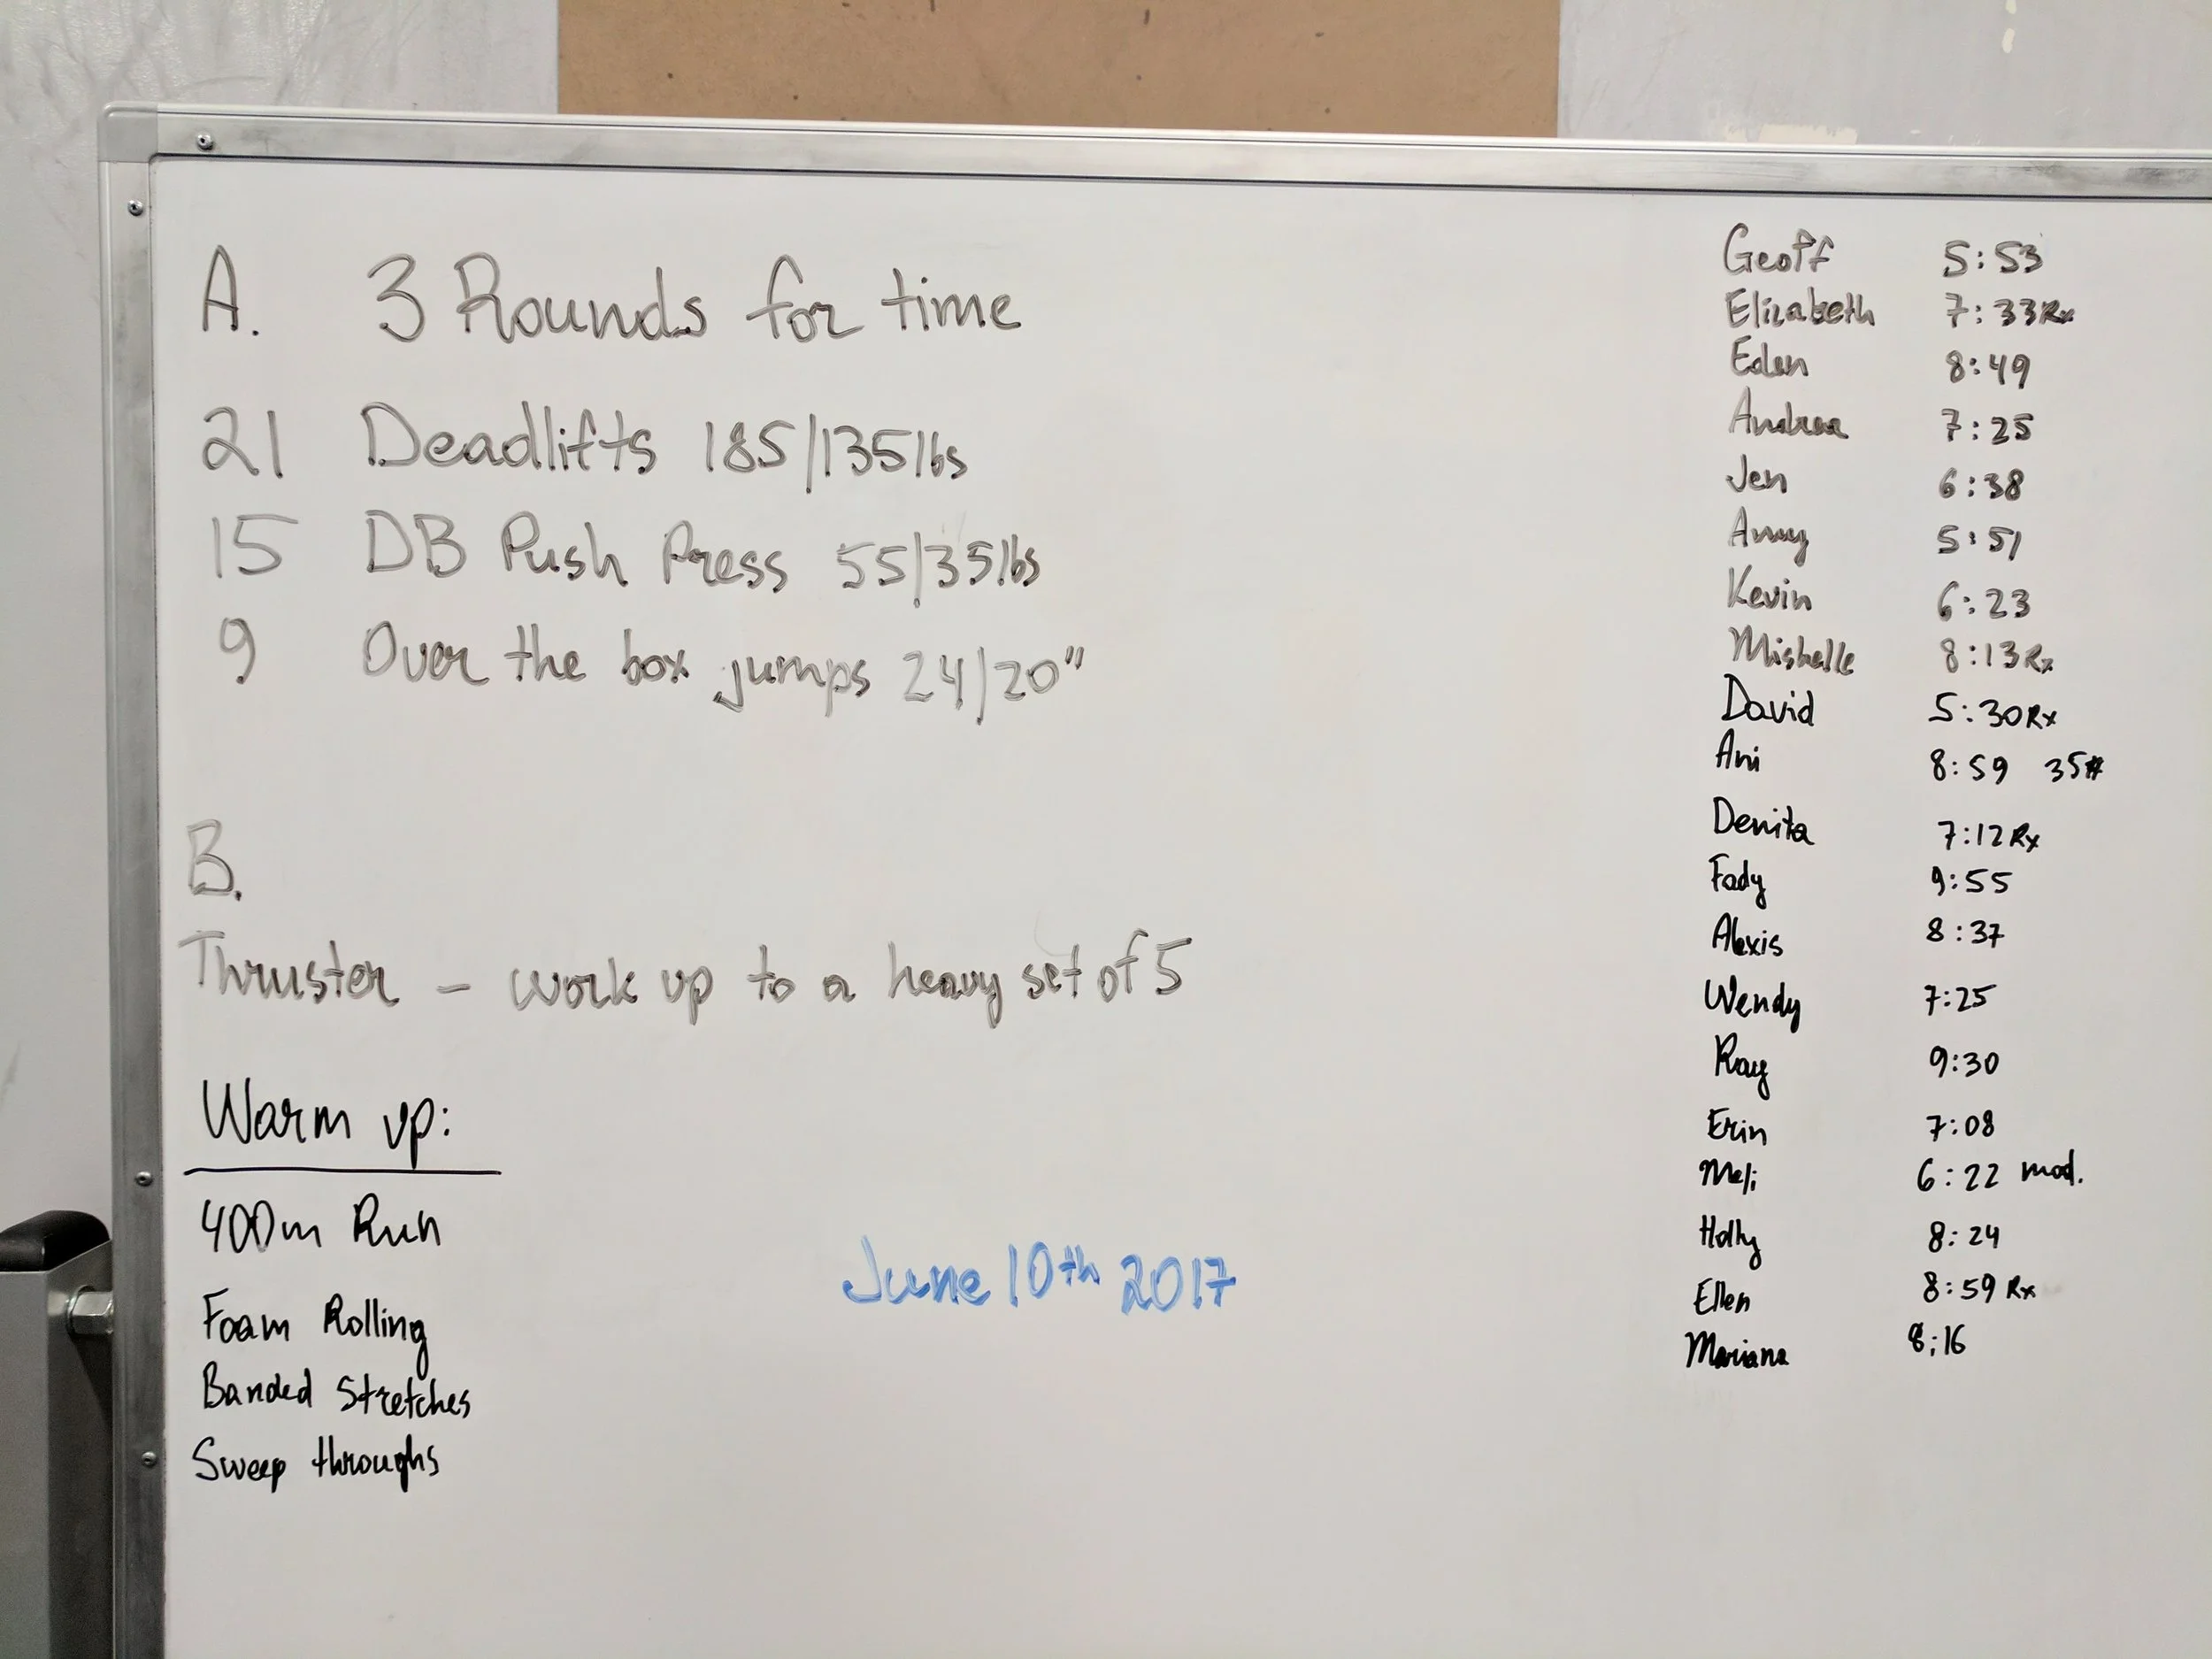 A. 3 Rounds for time
21 Deadlifts 185/135lbs
15 DB Push Press 55/35lbs
9 Over the box jumps 24/20"
B.
Thruster - work up to a heavy set of 5
Warm up:
400m Run
Foam Rolling
Banded Stretches
Sweep throughs
June 10th 2017
Geoff 5:53
Elizabeth 7:33 Rx
Eden 8:49
Andrea 7:25
Jen 6:38
Amy 5:51
Kevin 6:23
Mishelle 8:13 Rx
David 5:30 Rx
Ani 8:59 35#
Denita 7:12 Rx
Fady 9:55
Alexis 8:37
Wendy 7:25
Ray 9:30
Erin 7:08
Meli 6:22 mod.
Holly 8:24
Ellen 8:59 Rx
Mariana 8:16